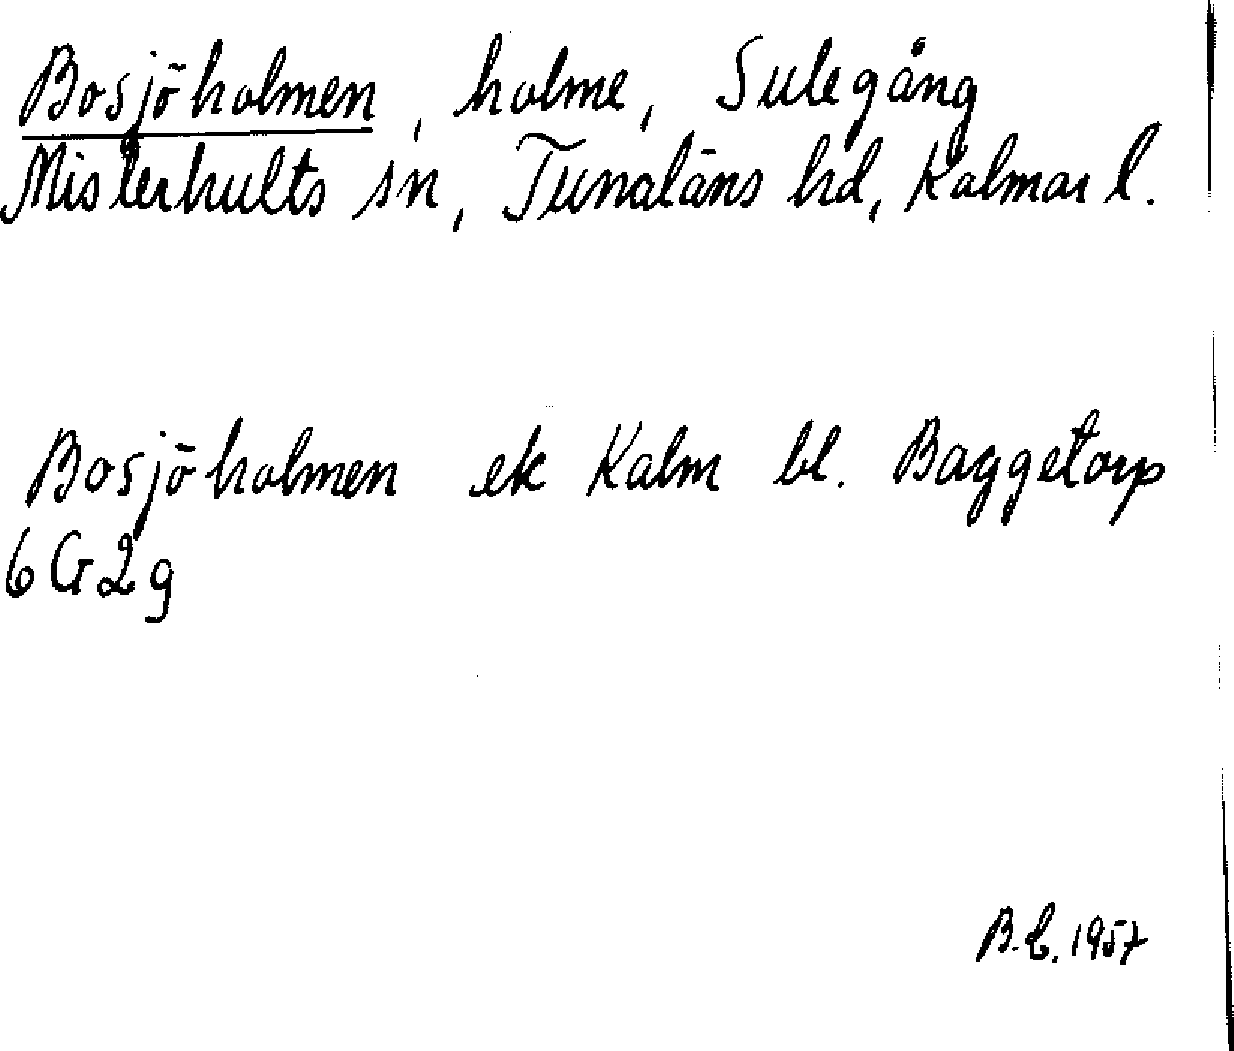 Bosjöholmen, holme, Sulegång
Misterhults sn, Tunaläns hd, Kalmar l.
Bosjöholmen ek Kalm bl. Baggetorp
6G2g
B.C. 1957